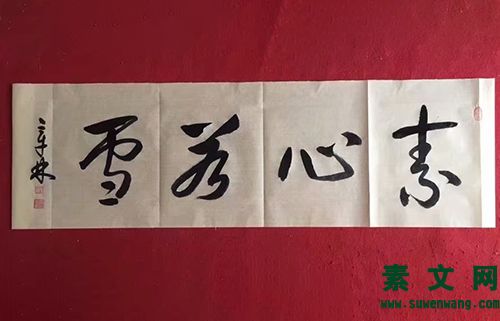 素心若雪
素文网
www.suwenwang.com